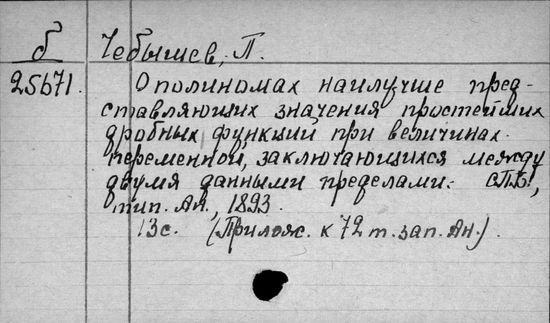 б Чебышев, П.
25671. О полиномах наилучше пред-
ставляющих значения простейших
дробных функций при величинах
переменной, заключающихся между
двумя данными пределами. СПб,
тип. Ан., 1893.
13с. (Прилож. к 72 т. зап. Ан.).